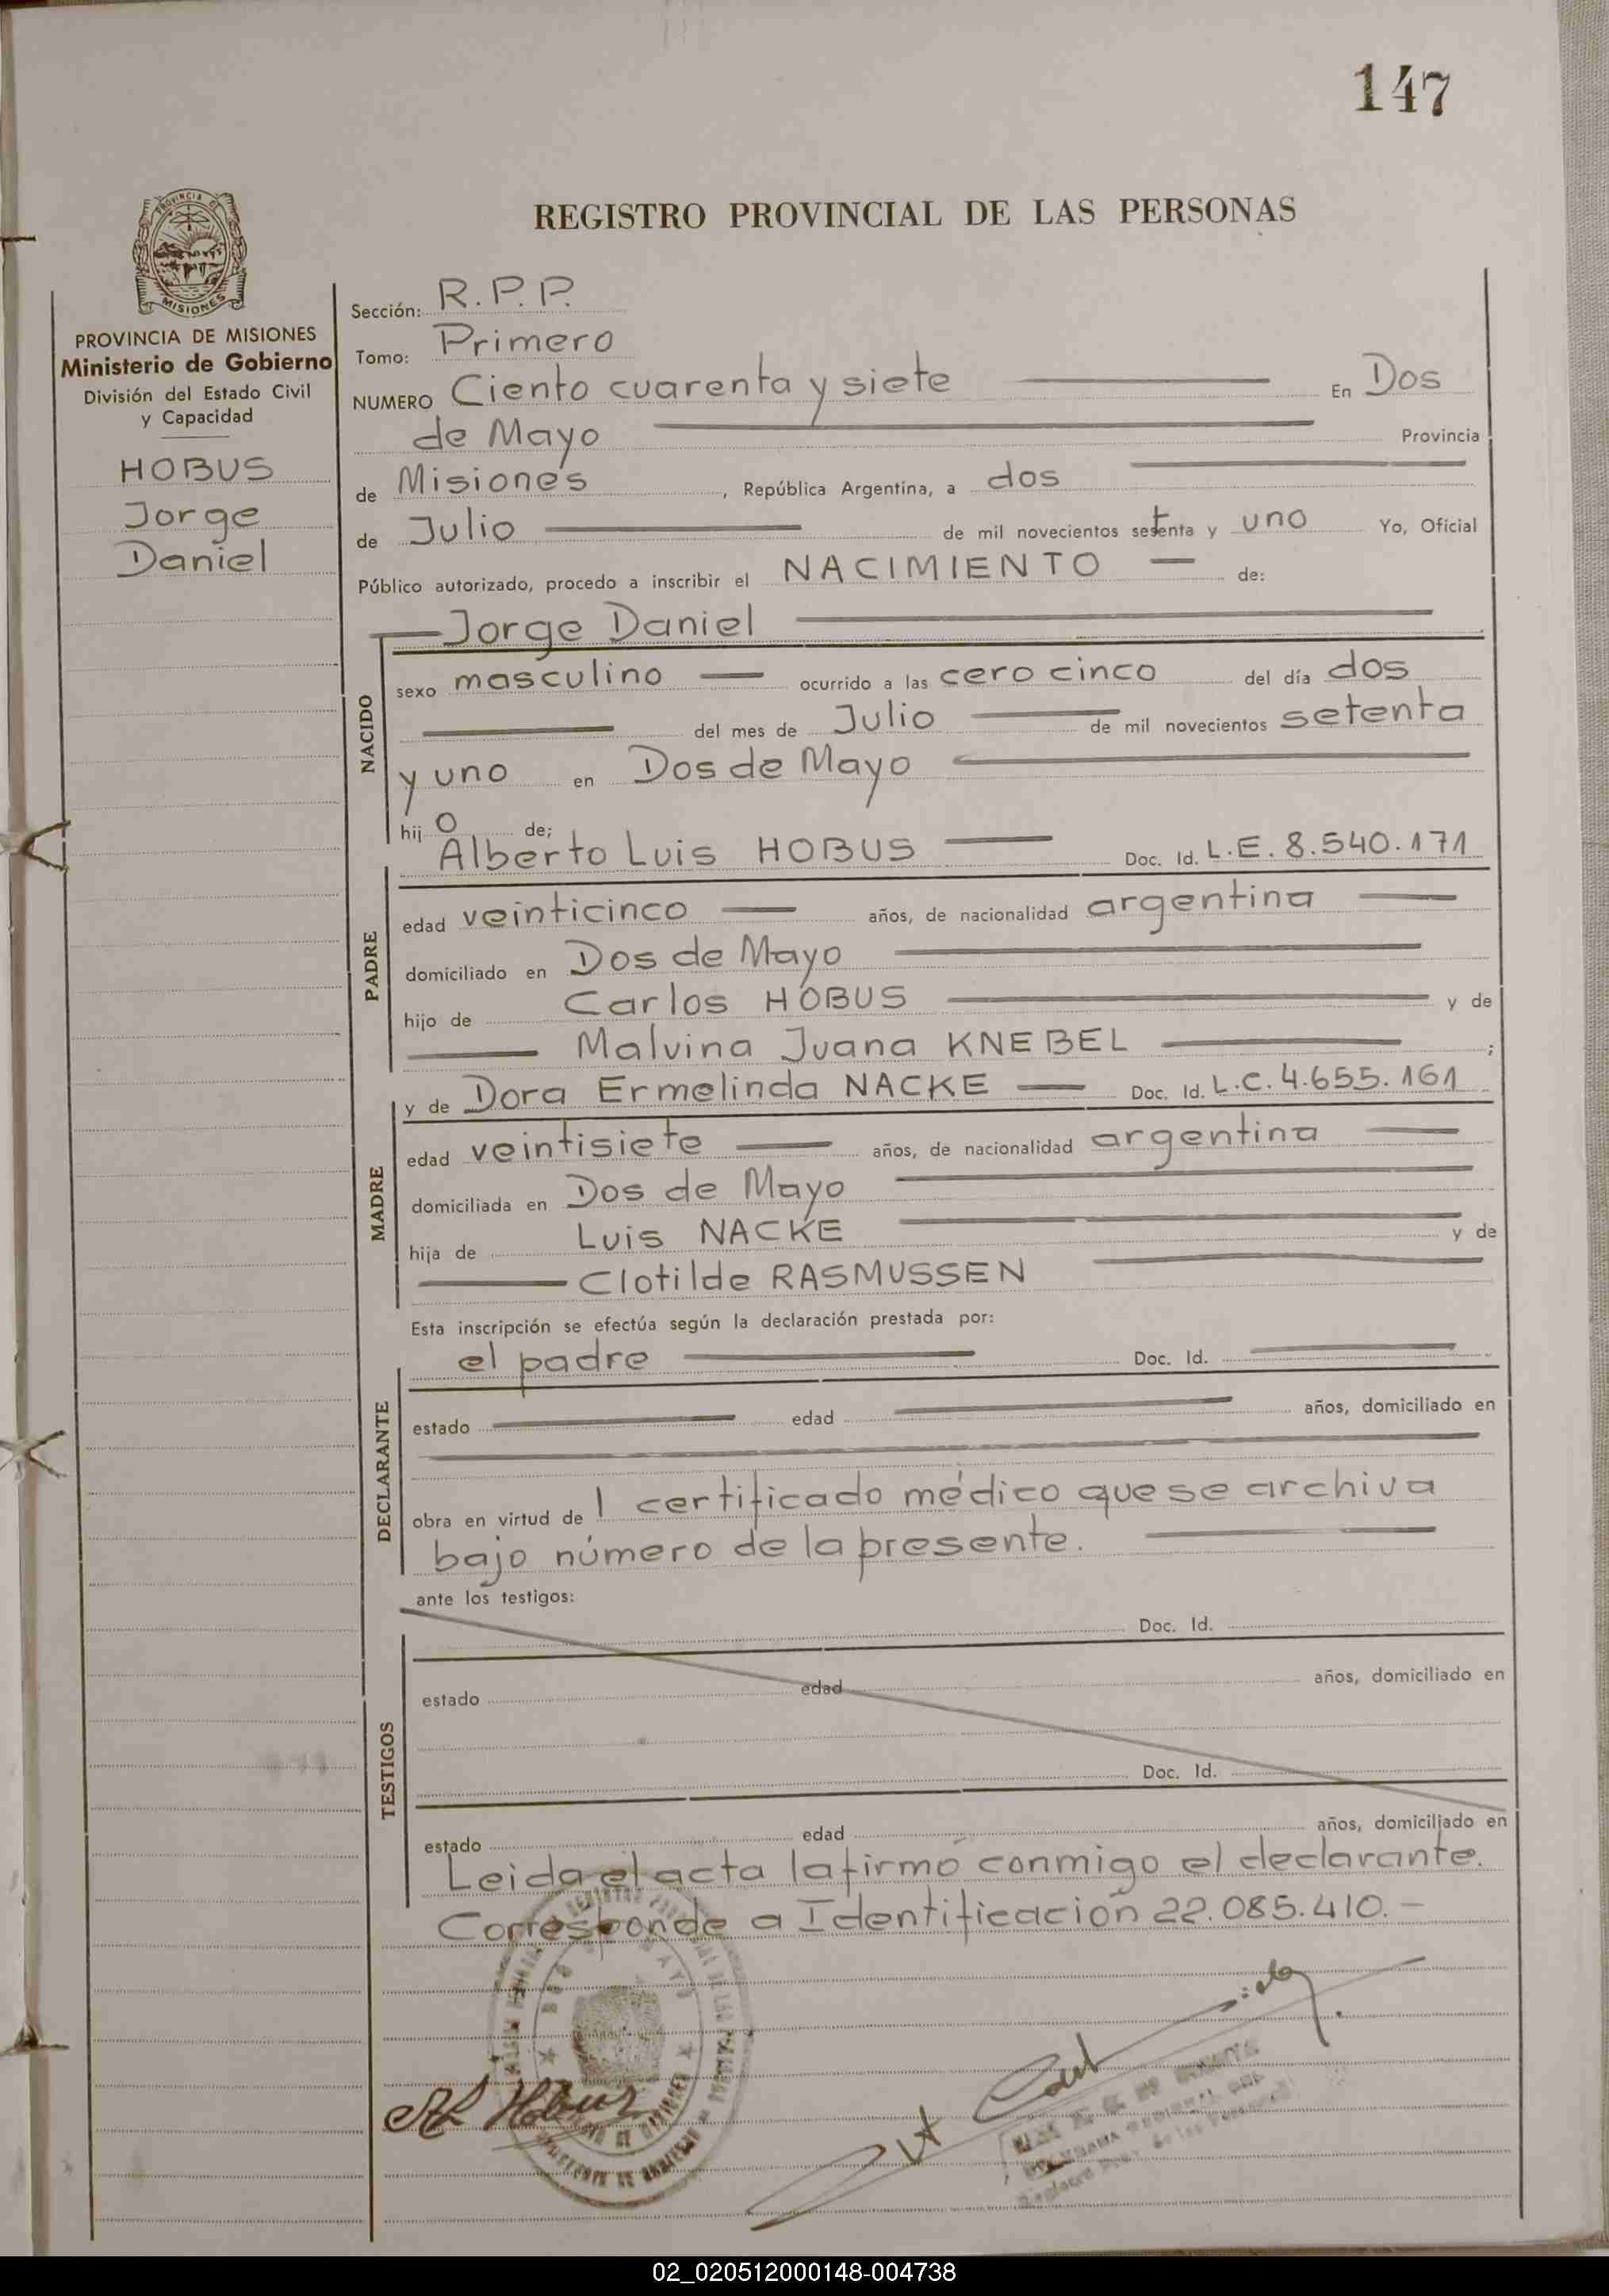 147
PROVINCIA DE MISIONES
REGISTRO PROVINCIAL DE LAS PERSONAS
PROVINCIA DE MISIONES
Ministerio de Gobierno
División del Estado Civil
y Capacidad
HOBUS
Jorge
Daniel
Sección: R.P.P.
Tomo: Primero
NUMERO Ciento cuarenta y siete En Dos
de Mayo Provincia
de Misiones, República Argentina, a dos
de Julio de mil novecientos setenta y uno Yo, Oficial
Público autorizado, procedo a inscribir el NACIMIENTO de:
Jorge Daniel
NACIDO
sexo masculino ocurrido a las cero cinco del día dos
del mes de Julio de mil novecientos setenta
y uno en Dos de Mayo
hijo de;
Alberto Luis HOBUS Doc. Id. L.E. 8.540.171
PADRE
edad veinticinco años, de nacionalidad argentina
domiciliado en Dos de Mayo
hijo de Carlos HOBUS y de
Malvina Juana KNEBEL ;
y de Dora Ermelinda NACKE Doc. Id. L.C. 4.655.161
MADRE
edad veintisiete años, de nacionalidad argentina
domiciliada en Dos de Mayo
hija de Luis NACKE y de
Clotilde RASMUSSEN
Esta inscripción se efectúa según la declaración prestada por:
el padre Doc. Id.
DECLARANTE
estado edad años, domiciliado en
obra en virtud de l certificado médico que se archiva
bajo número de la presente.
ante los testigos:
Doc. Id.
TESTIGOS
estado edad años, domiciliado en
Doc. Id.
estado edad años, domiciliado en
Leida el acta la firmó conmigo el declarante.
Corresponde a Identificación 22.085.410.-
Hobus
02_020512000148-004738